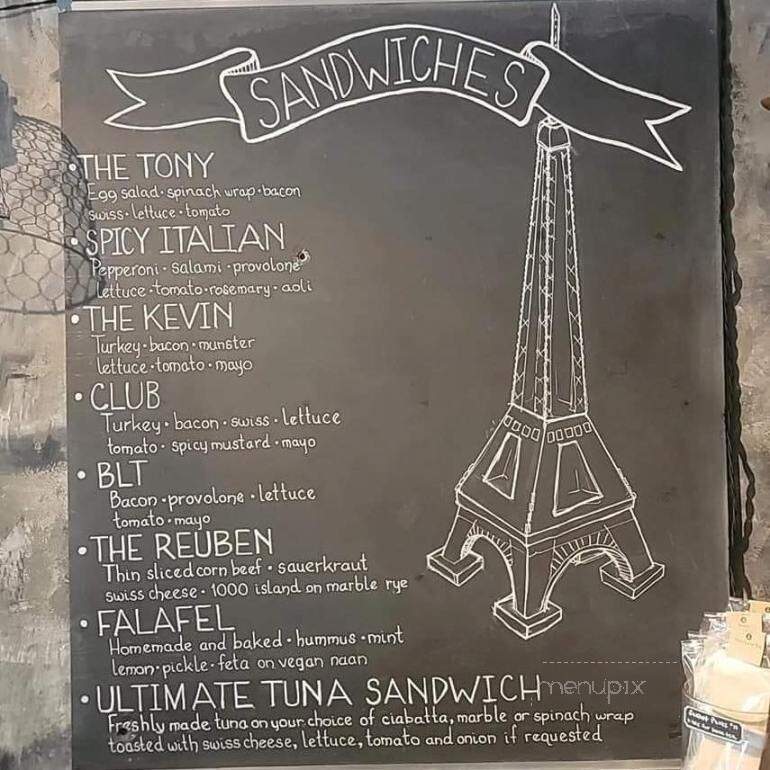 SANDWICHES
• THE TONY
Egg salad • spinach wrap • bacon
swiss • lettuce • tomato
• SPICY ITALIAN
Pepperoni • salami • provolone
Lettuce • tomato • rosemary • aoli
• THE KEVIN
Turkey • bacon • munster
lettuce • tomato • mayo
• CLUB
Turkey • bacon • swiss • lettuce
tomato • spicy mustard • mayo
• BLT
Bacon • provolone • lettuce
tomato • mayo
• THE REUBEN
Thin sliced corn beef • sauerkraut
swiss cheese • 1000 island on marble rye
• FALAFEL
Homemade and baked • hummus • mint
lemon • pickle • feta on vegan naan
• ULTIMATE TUNA SANDWICH
menupix
Freshly made tuna on your choice of ciabatta, marble or spinach wrap
toasted with swiss cheese, lettuce, tomato and onion if requested